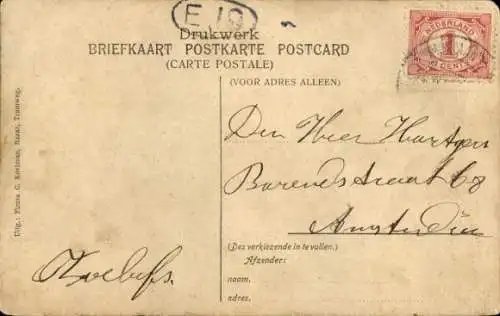 E 10
Drukwerk
BRIEFKAART POSTKARTE POSTCARD
(CARTE POSTALE)
(VOOR ADRES ALLEEN)
NEDERLAND
1
CENT
Den Heer Hartgers
Barendsstraat 68
Amsterdam
(Des verkiezende in te vullen.)
Afzender:
naam,
adres,
Uitg.: Firma G. Naarden, Tramweg.